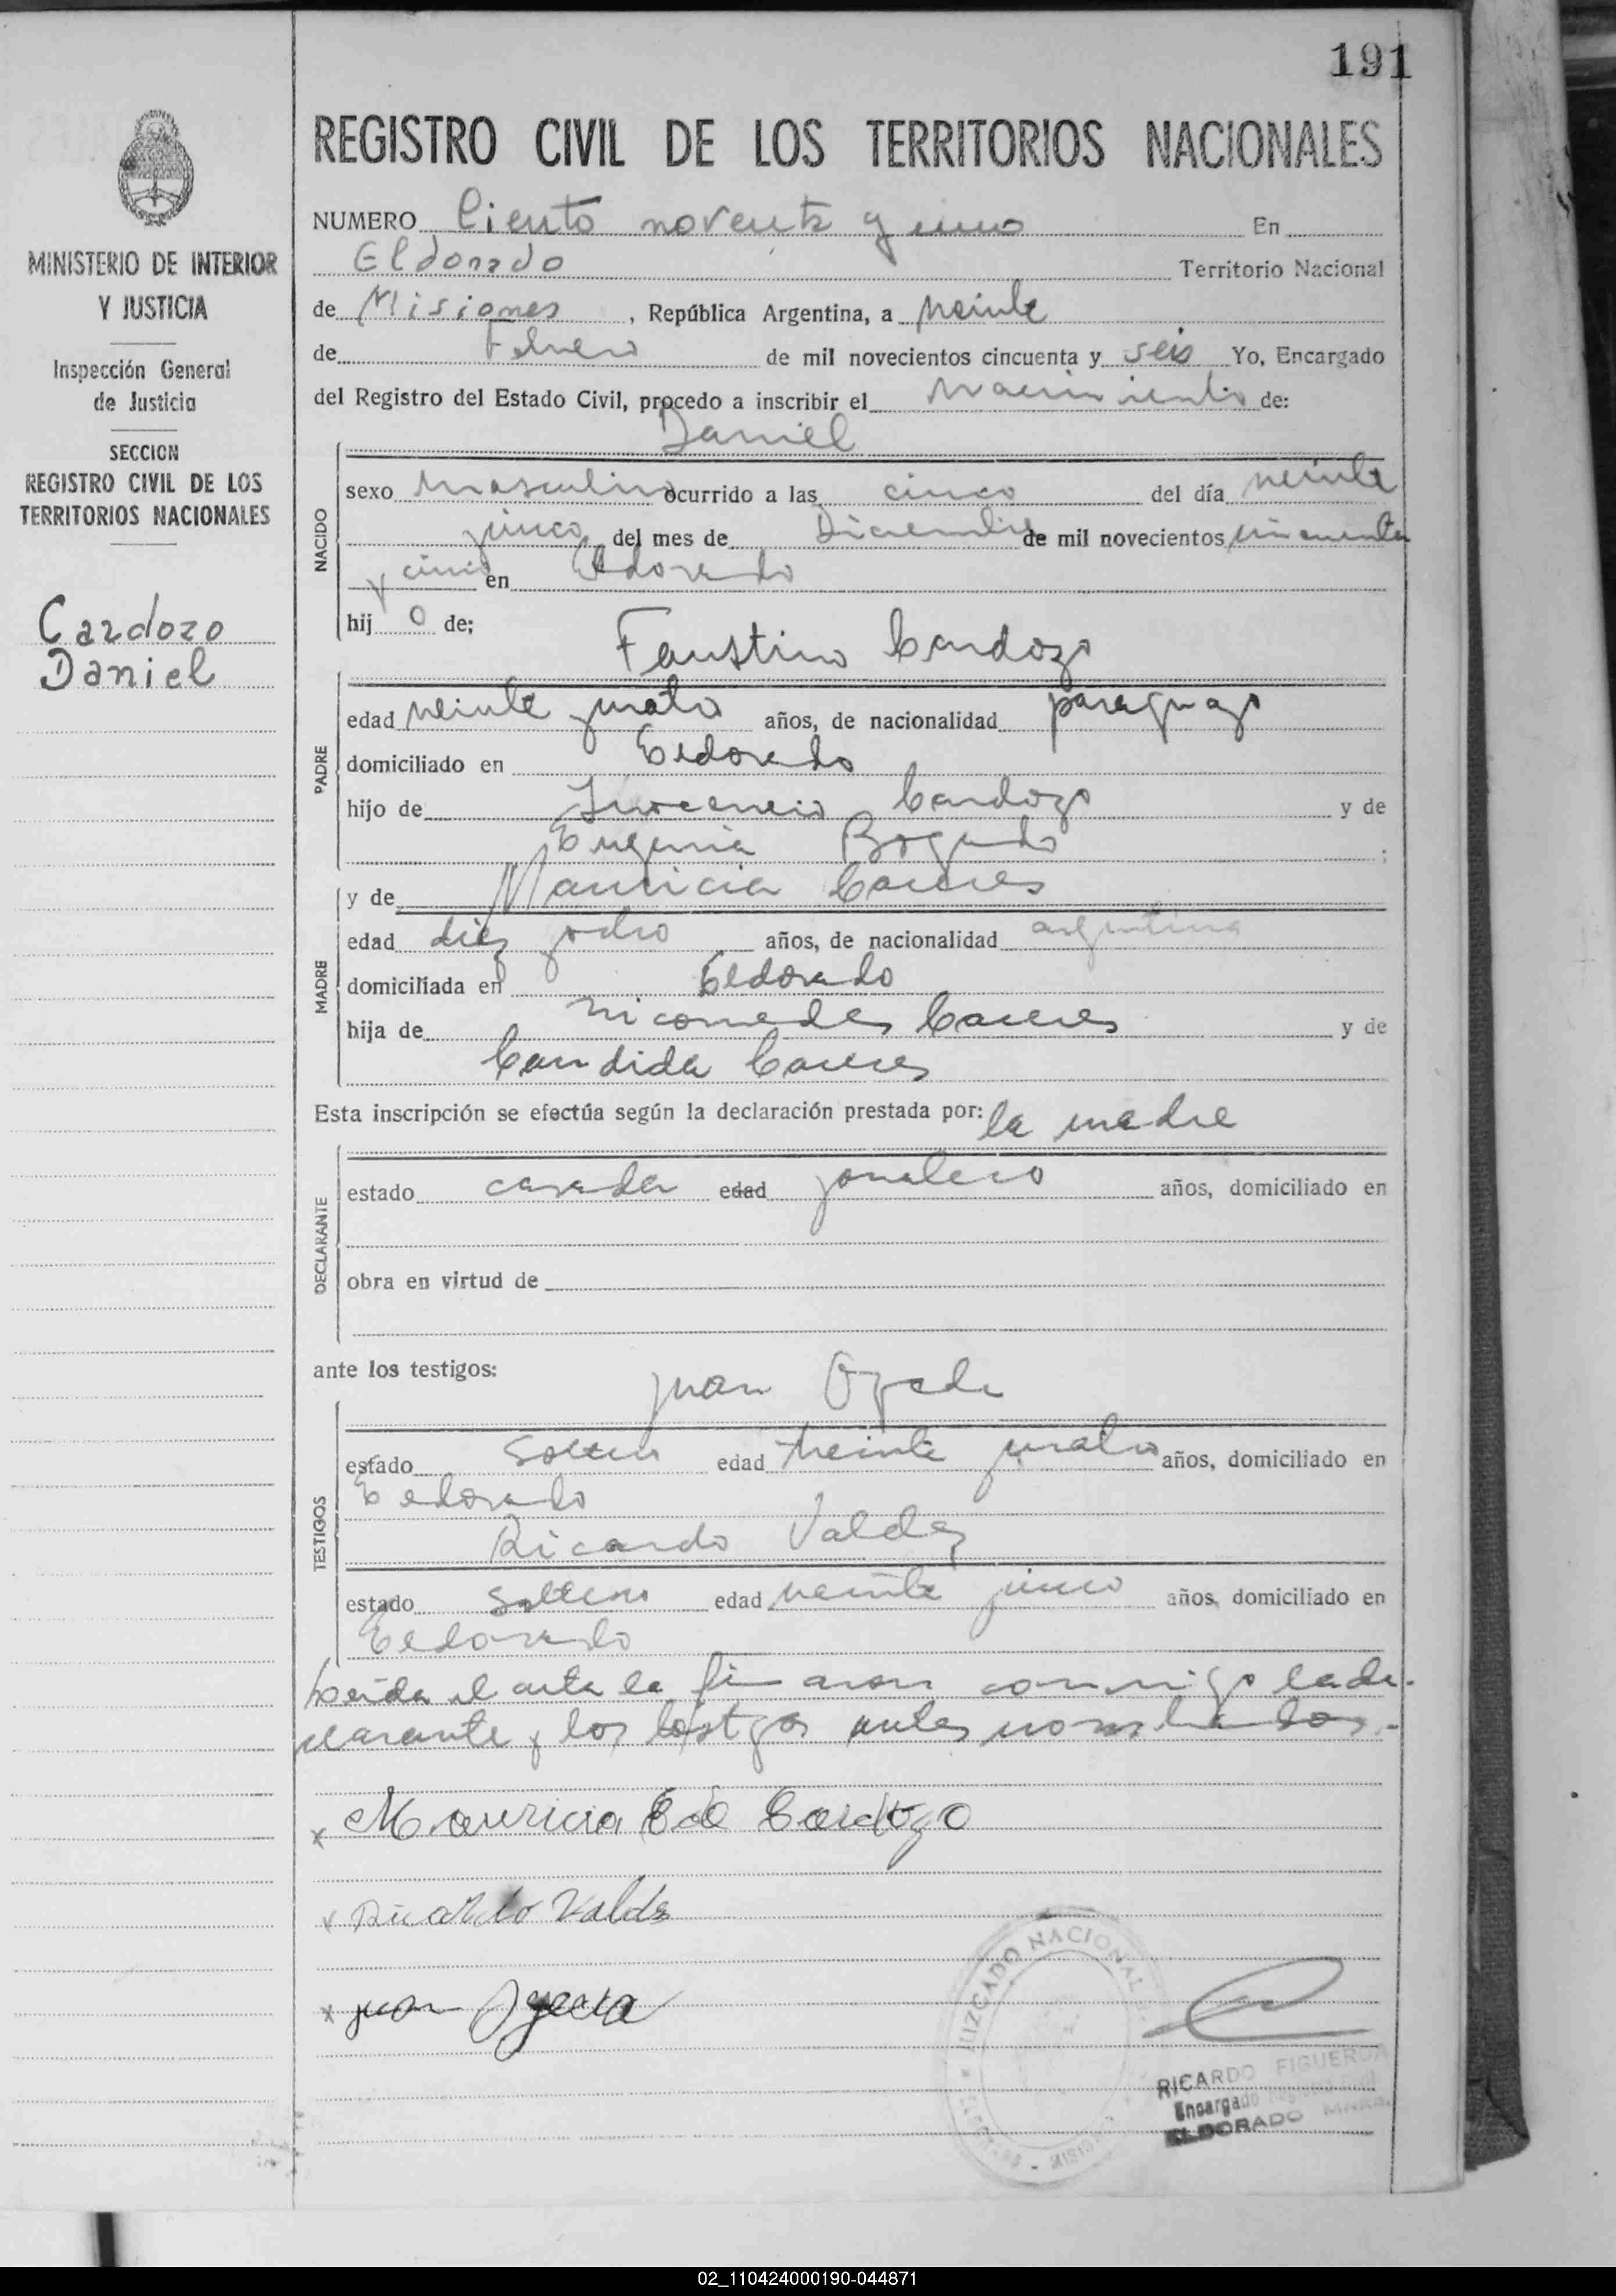 191
MINISTERIO DE INTERIOR
Y JUSTICIA
Inspección General
de Justicia
SECCION
REGISTRO CIVIL DE LOS
TERRITORIOS NACIONALES
Cardozo
Daniel
REGISTRO CIVIL DE LOS TERRITORIOS NACIONALES
NUMERO Ciento noventa y uno En
Eldorado Territorio Nacional
de Misiones, República Argentina, a veinte
de Febrero de mil novecientos cincuenta y seis Yo, Encargado
del Registro del Estado Civil, procedo a inscribir el nacimiento de:
Daniel
NACIDO
sexo masculino ocurrido a las cinco del día veinte
y cinco del mes de Diciembre de mil novecientos cincuenta
y cinco en Eldorado
hij o de;
Faustino Cardozo
PADRE
edad veinte y cuatro años, de nacionalidad paraguayo
domiciliado en Eldorado
hijo de Inocencio Cardozo y de
Eugenia Bogado ;
y de Mauricia Caceres
MADRE
edad diez y ocho años, de nacionalidad argentina
domiciliada en Eldorado
hija de Nicomedes Caceres y de
Candida Caceres
Esta inscripción se efectúa según la declaración prestada por: la madre
DECLARANTE
estado casada edad jornalero años, domiciliado en
obra en virtud de
ante los testigos:
Juan Ojeda
TESTIGOS
estado soltero edad treinta y cuatro años, domiciliado en
Eldorado
Ricardo Valdez
estado soltero edad veinte y cinco años, domiciliado en
Eldorado
Leida el acta la firmaron conmigo la de-
clarante y los testigos antes nombrados.-
x Mauricia C de Cardozo
x Ricardo Valdez
x Juan Ojeda
JUZGADO NACIONAL
RICARDO FIGUEROA
Encargado Registro Civil
ELDORADO MNES.
02_110424000190-044871